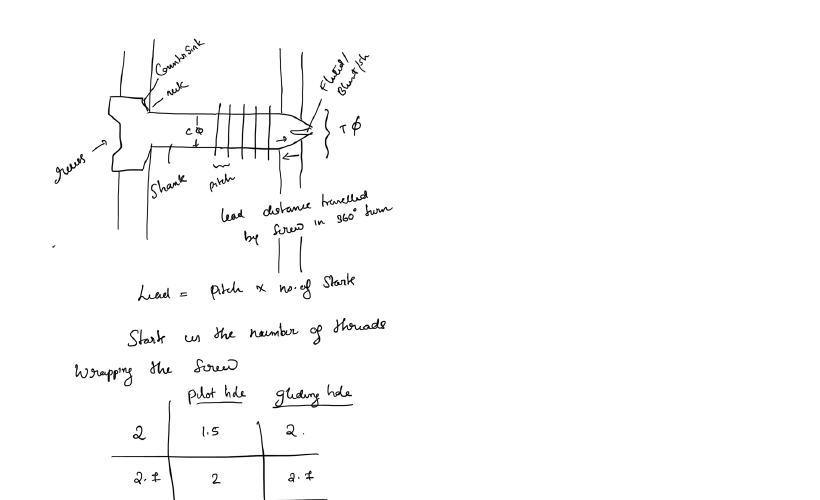 Countersink
neck
Fluted/
Blunt/sh
cφ
Tφ
recess
Shank
pitch
lead distance travelled
by screw in 360° turn
Lead = pitch x no. of Starts
Starts is the number of threads
Wrapping the Screw
pilot hole gliding hole
2 1.5 2.
2.7 2 2.7